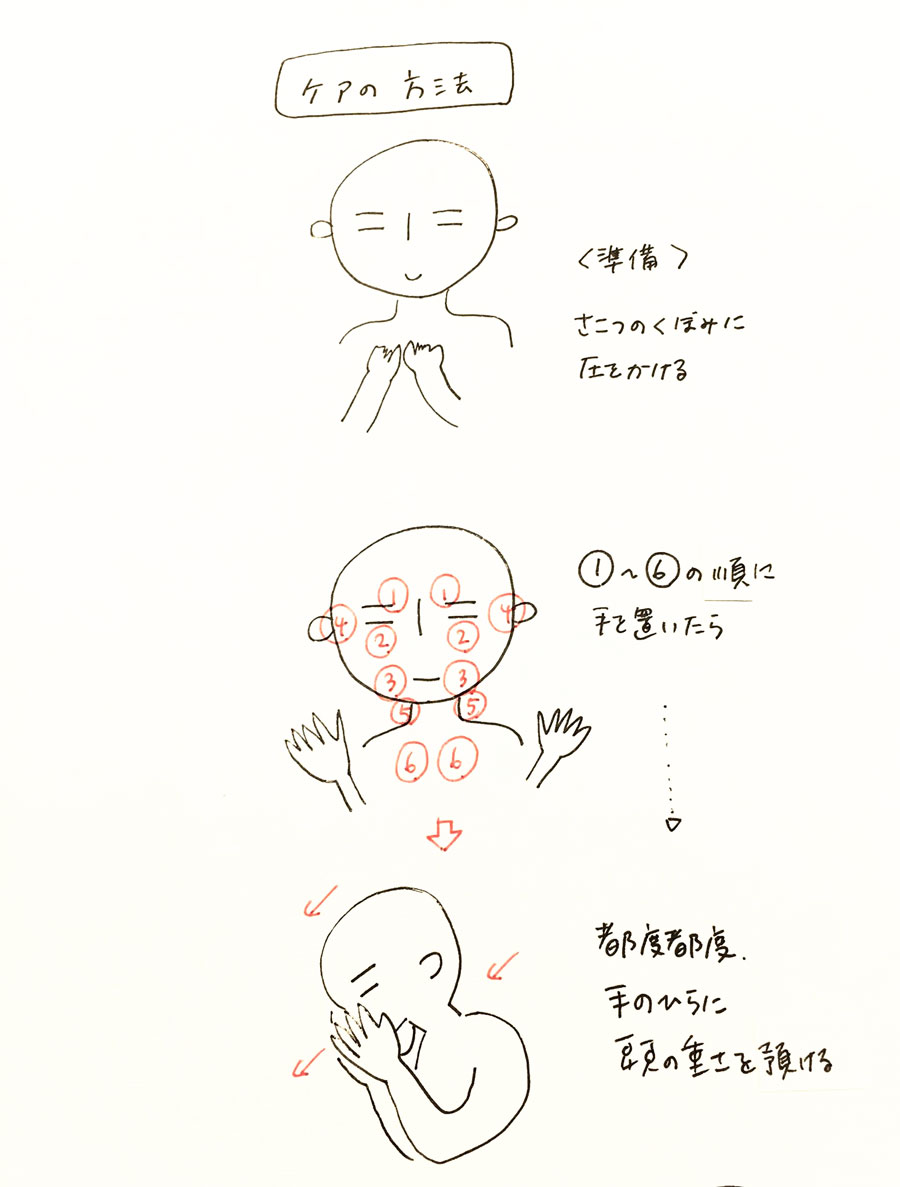 ケアの方法
〈準備〉
さこつのくぼみに
圧をかける
①～⑥の順に
手を置いたら
1 1
4 4
2 2
3 3
5 5
6 6
都度都度、
手のひらに
頭の重さを預ける